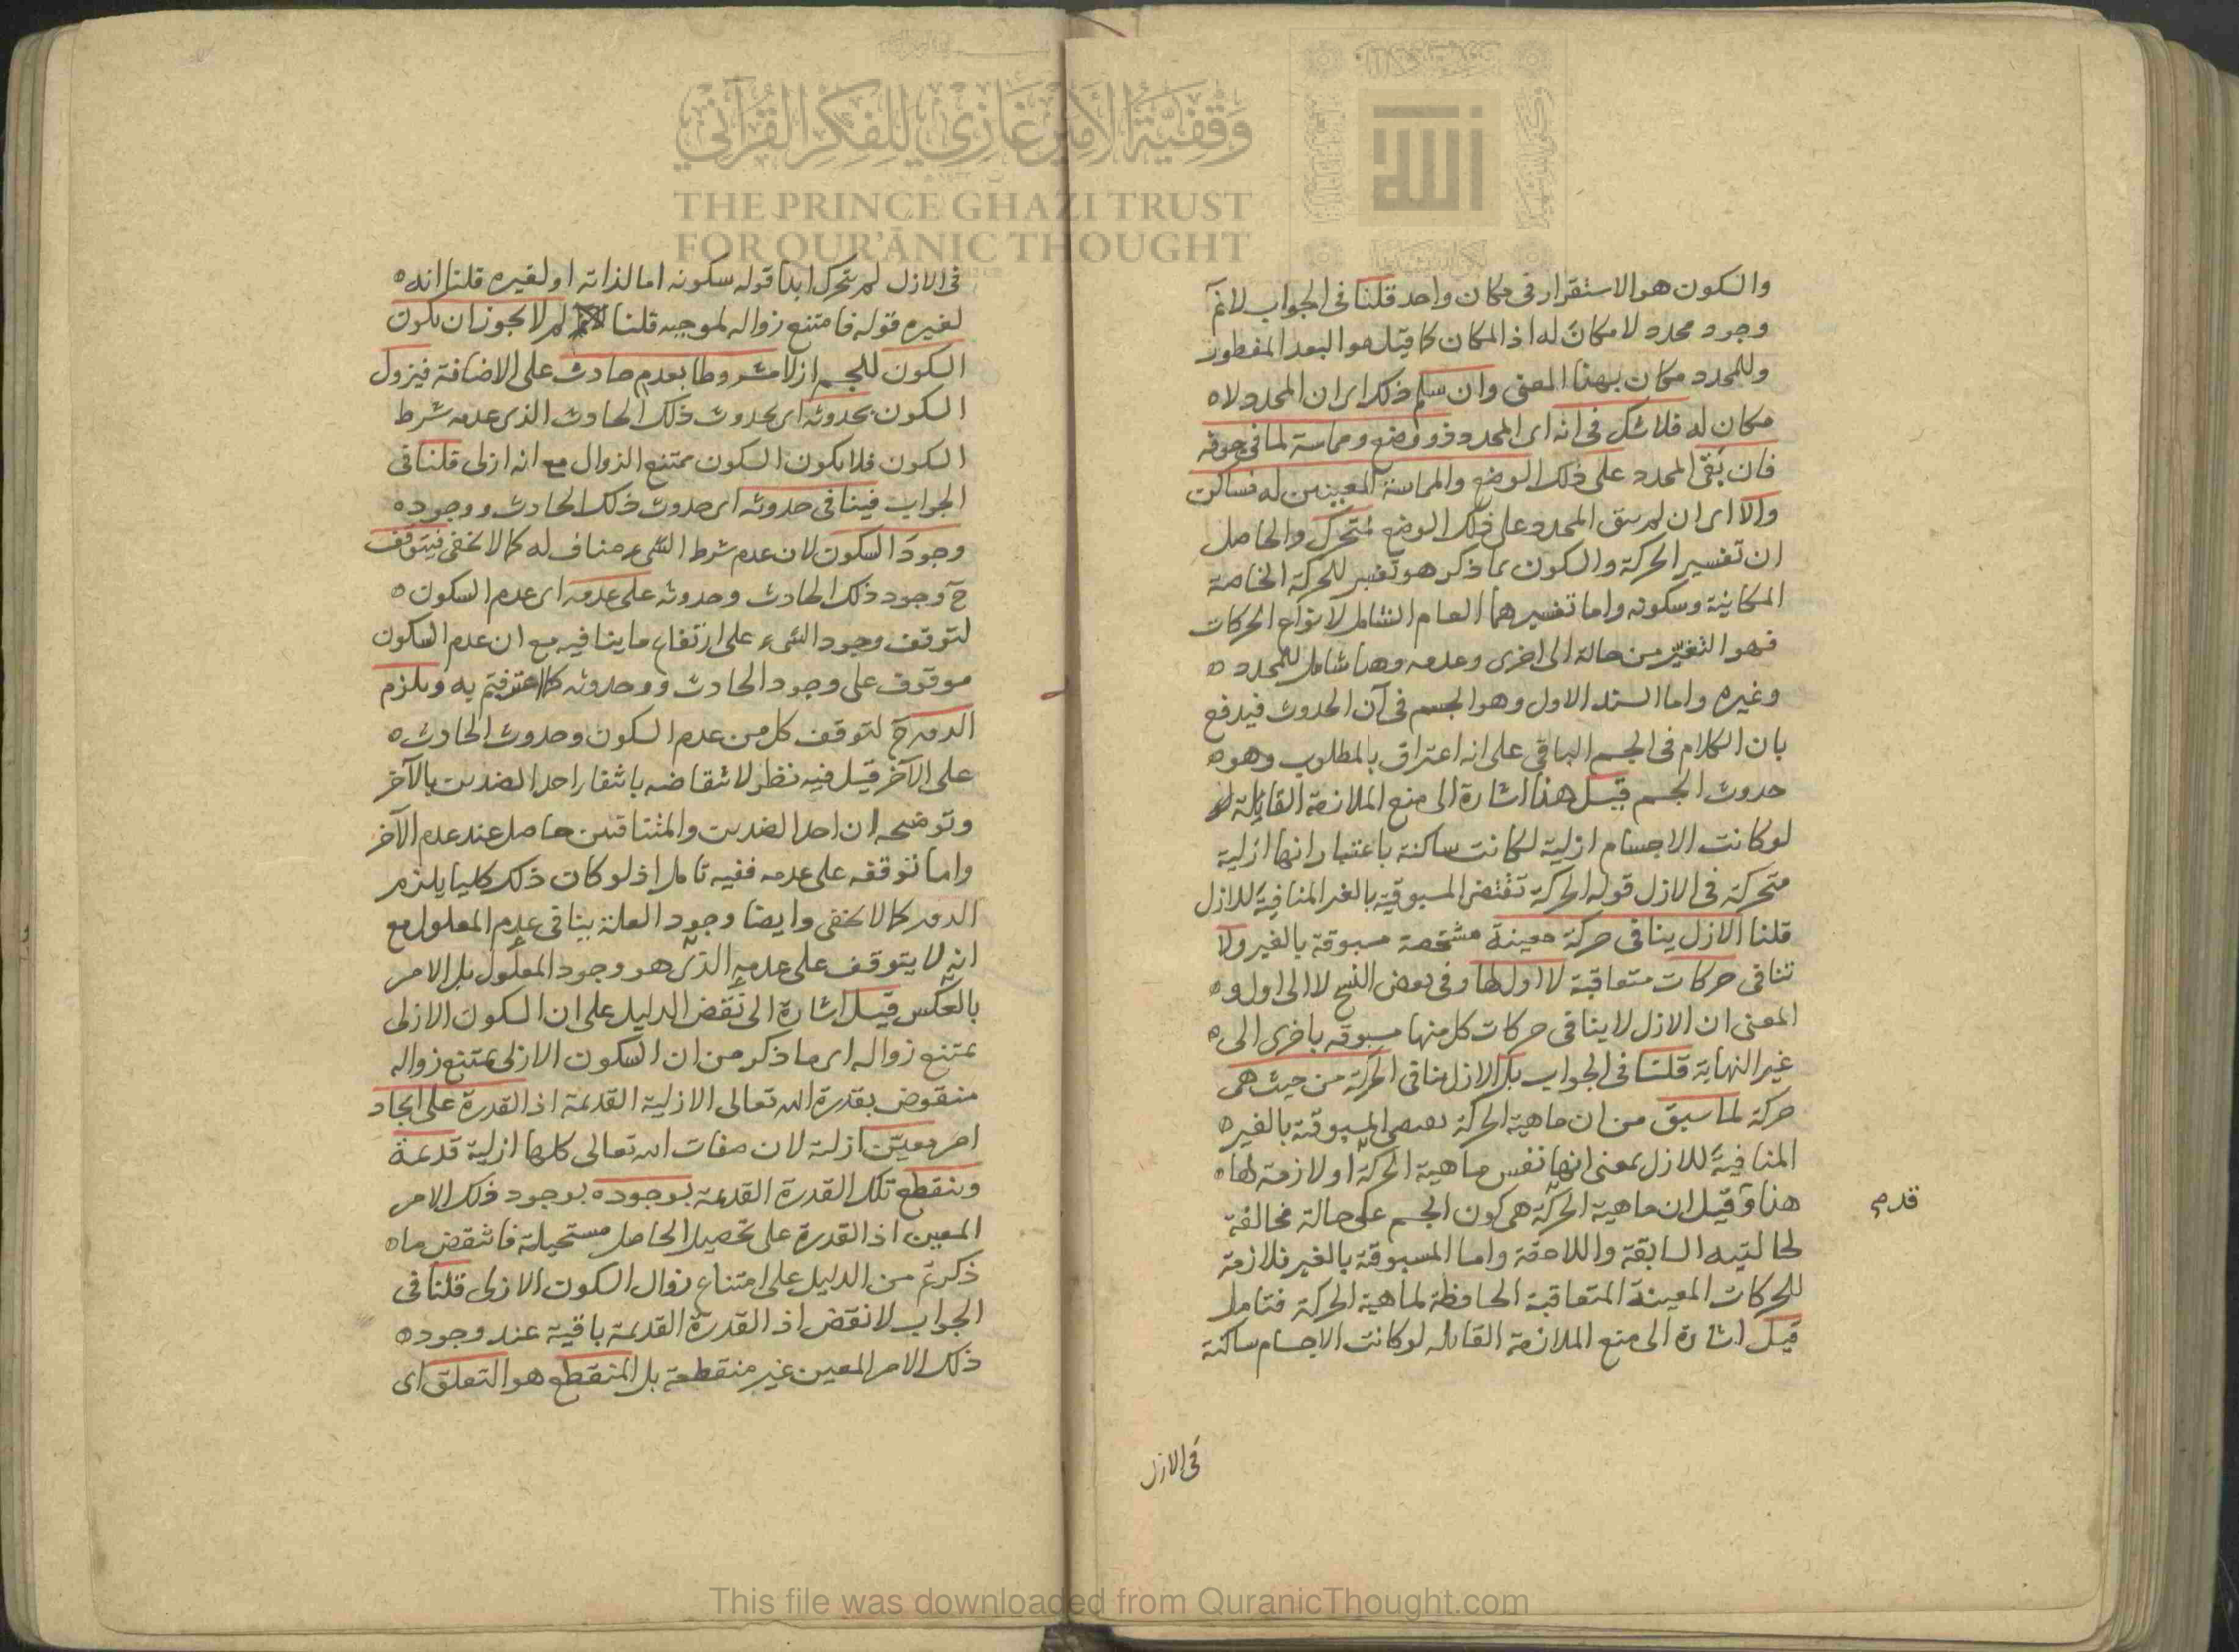 وقفية الأمير غازي للفكر القرآني
THE PRINCE GHAZI TRUST
FOR QUR'ĀNIC THOUGHT
والسكون هو الاستقرار في مكان واحد قلنا في الجواب لا نم
وجود محدد لا مكان له اذ المكان كما قيل هو البعد المفطور
وللمحدد مكان بهذا المعنى وان سلم ذلك اى ان المحدد لا
مكان له فلا شك في انه اى المحدد ذو وضع ومماسة لما في جوفه
فان بقى المحدد على ذلك الوضع والمماسة المعينين له فساكن
والا اى ان لم يبق المحدد على ذلك الوضع فمتحرك والحاصل
ان تفسير الحركة والسكون بما ذكر هو تفسير للحركة الخاصة
المكانية وسكونه واما تفسيرهما العام الشامل لانواع الحركات
فهو التغير من حالة الى اخرى وعدمه وهذا شامل للمحدد
وغيره واما السند الاول وهو الجسم في آن الحدوث فيدفع
بان الكلام في الجسم الباقي على انه اعتراف بالمطلوب وهو
حدوث الجسم قيل هذا اشارة الى منع الملازمة القايلة
لو كانت الاجسام ازلية لكانت ساكنة باعتبار انها ازلية
متحركة في الازل قوله الحركة تقتضى المسبوقية بالغير المنافية للازل
قلنا الازل ينافى حركة معينة مشخصة مسبوقة بالغير ولا
تنافى حركات متعاقبة لا اول لها وفى بعض النسخ لا الى اول و
المعنى ان الازل لا ينافى حركات كل منها مسبوقه باخرى الى
غير النهاية قلنا في الجواب بل الازل ينافى الحركة من حيث هى
حركة لما سبق من ان ماهية الحركة تقتضى المسبوقية بالغير
المنافية للازل بمعنى انها نفس ماهية الحركة او لازمة لها
هذا وقيل ان ماهية الحركة هى كون الجسم على حالة مخالفة
لحالتيه السابقة واللاحقة واما المسبوقة بالغير فلازمة
للحركات المعينة المتعاقبة الحافظة لماهية الحركة فتامل
قيل اشارة الى منع الملازمة القائله لو كانت الاجسام ساكنة
في الازل
في الازل لم يتحرك ابدا قوله سكونه اما لذاته او لغيره قلنا انه
لغيره قوله فامتنع زواله لموجبه قلنا لم لا يجوز ان يكون
السكون للجسم ازلا مشروطا بعدم حادث على الاضافة فيزول
السكون بحدوثه اى بحدوث ذلك الحادث الذى عدمه شرط
السكون فلا يكون السكون ممتنع الزوال مع انه ازلى قلنا فى
الجواب فينافى حدوثه اى حدوث ذلك الحادث ووجوده
وجود السكون لان عدم شرط الشىء مناف له كما لا يخفى فيتوقف
ح وجود ذلك الحادث وحدوثه على عدمه اى عدم السكون
لتوقف وجود الشىء على ارتفاع ما ينافيه مع ان عدم السكون
موقوف على وجود الحادث وحدوثه كما اعترفتم به ويلزم
الدور ح لتوقف كل من عدم السكون وحدوث الحادث
على الآخر قيل فيه نظر لانتقاضه بانتفاء احد الضدين بالآخر
وتوضيحه ان احد الضدين والمتنافيين حاصل عند عدم الآخر
واما توقفه على عدمه ففيه تامل اذ لو كان ذلك كليا يلزم
الدور كما لا يخفى وايضا وجود العلة ينافى عدم المعلول مع
انه لا يتوقف على عدمه الذى هو وجود المعلول بل الامر
بالعكس قيل اشارة الى نقض الدليل على ان السكون الازلى
يمتنع زواله اى ما ذكر من ان السكون الازلى يمتنع زواله
منقوض بقدرة الله تعالى الازلية القديمة اذ القدرة على ايجاد
امر معين ازلية لان صفات الله تعالى كلها ازلية قديمة
وينقطع تلك القدرة القديمة بوجوده بوجود ذلك الامر
المعين اذ القدرة على تحصيل الحاصل مستحيلة فانتقض ما
ذكرتم من الدليل على امتناع زوال السكون الازلى قلنا فى
الجواب لا نقض اذ القدرة القديمة باقية عند وجود
ذلك الامر المعين غير منقطعة بل المنقطع هو التعلق اى
This file was downloaded from QuranicThought.com